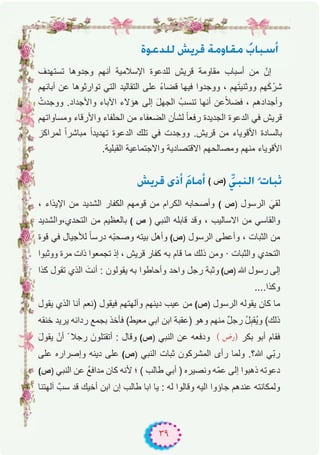 أسبابُ مقاومة قريش للدعوة
إنَّ من أسباب مقاومة قريش للدعوة الإسلامية أنهم وجدوها تستهدف
شركَهم ووثنيتَهم ، ووجدوا فيها قضاءً على التقاليد التي توارثوها عن آبائهم
وأجدادهم ، فضلاً عن أنها تنسبُ الجهلَ إلى هؤلاء الآباء والأجداد. ووجدتْ
قريش في الدعوة الجديدة رفعاً لشأن الضعفاء من الحلفاء والأرقاء ومساواتهم
بالسادة الأقوياء من قريش. ووجدت في تلك الدعوة تهديداً مباشراً لمراكز
الأقوياء منهم ومصالحهم الاقتصادية والاجتماعية القبلية.
ثباتُ النبيِّ (ص) أمامَ أذى قريش
لقيَ الرسول (ص) وأصحابه الكرام من قومهم الكفار الشديد من الإيذاء ،
والقاسي من الاساليب ، وقد قابله النبي (ص) بالعظيم من التحدي،والشديد
من الثبات ، وأعطى الرسول (ص) وأهل بيته وصحبُه درساً للأجيال في قوة
التحدي والثبات ٠ ومن ذلك ما قام به كفار قريش ، إذ تجمعوا ذات مرة ووثبوا
إلى رسول الله (ص) وثبة رجل واحد وأحاطوا به يقولون : أنتَ الذي تقول كذا
وكذا....
ما كان يقوله الرسول (ص) من عيب دينهم وآلهتهم فيقول (نعم أنا الذي يقول
ذلك) ويُقبِلُ رجلٌ منهم وهو (عقبة ابن ابي معيط) فأخذَ بجمع ردائه يريد خنقه
فقام أبو بكر (رض) ودفعه عن النبي (ص) وقال : أتقتلونَ رجلاً أنْ يقولَ
ربّي الله؟. ولما رأى المشركون ثبات النبي (ص) على دينه وإصراره على
دعوته ذهبوا إلى عمّه ونصيره ( أبي طالب ) ؛ لأنه كان مدافعُ عن النبي (ص)
ولمكانته عندهم جاؤوا اليه وقالوا له : يا ابا طالب إن ابن أخيك قد سبَّ آلهتنا
٣٩